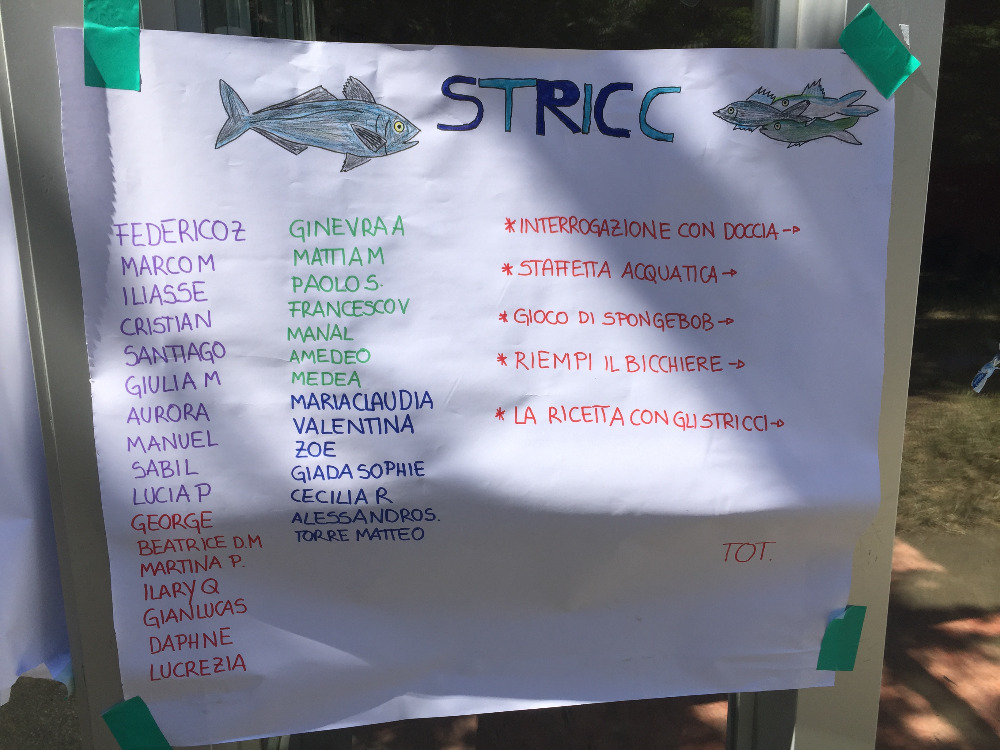 STRICC
FEDERICO Z
MARCO M
ILIASSE
CRISTIAN
SANTIAGO
GIULIA M
AURORA
MANUEL
SABIL
LUCIA P
GEORGE
BEATRICE D.M
MARTINA P.
ILARY Q
GIANLUCAS
DAPHNE
LUCREZIA
GINEVRA A
MATTIA M
PAOLO S.
FRANCESCO V
MANAL
AMEDEO
MEDEA
MARIACLAUDIA
VALENTINA
ZOE
GIADA SOPHIE
CECILIA R
ALESSANDRO S.
TORRE MATTEO
* INTERROGAZIONE CON DOCCIA →
* STAFFETTA ACQUATICA →
* GIOCO DI SPONGEBOB →
* RIEMPI IL BICCHIERE →
* LA RICETTA CON GLI STRICCI →
TOT.